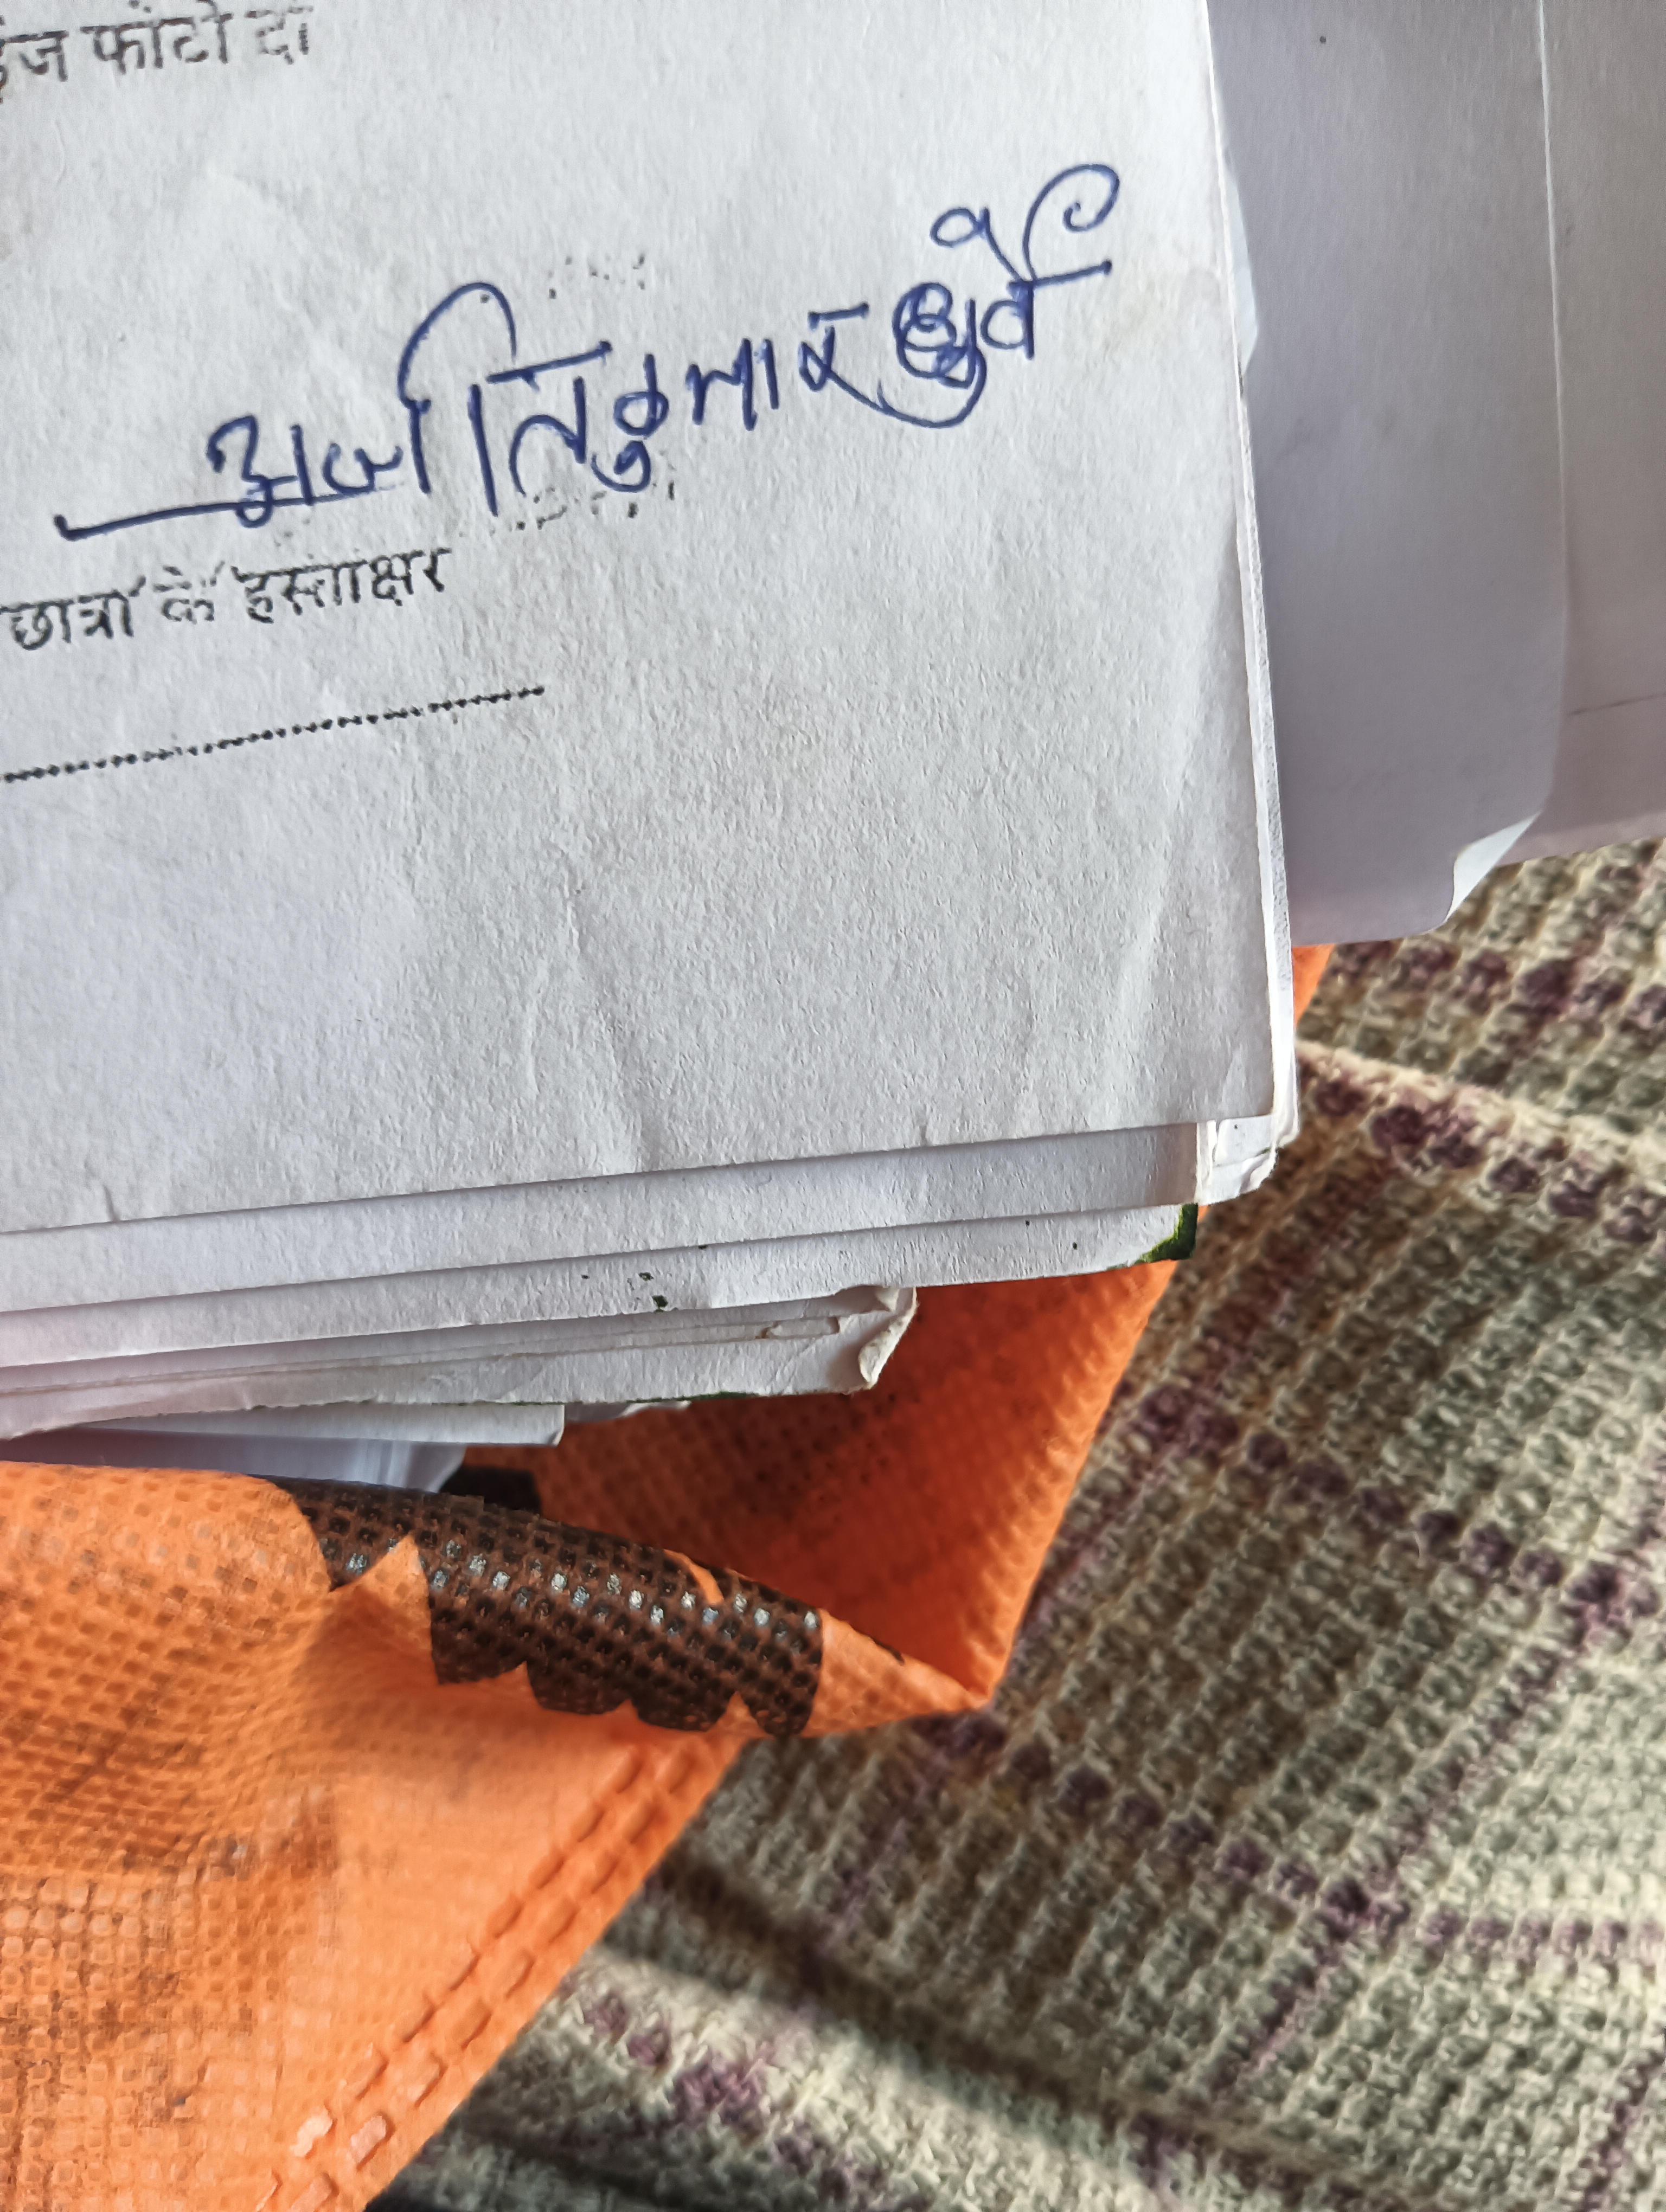 फोटो दो
अजीत कुमार धुर्वे
छात्रों के हस्ताक्षर